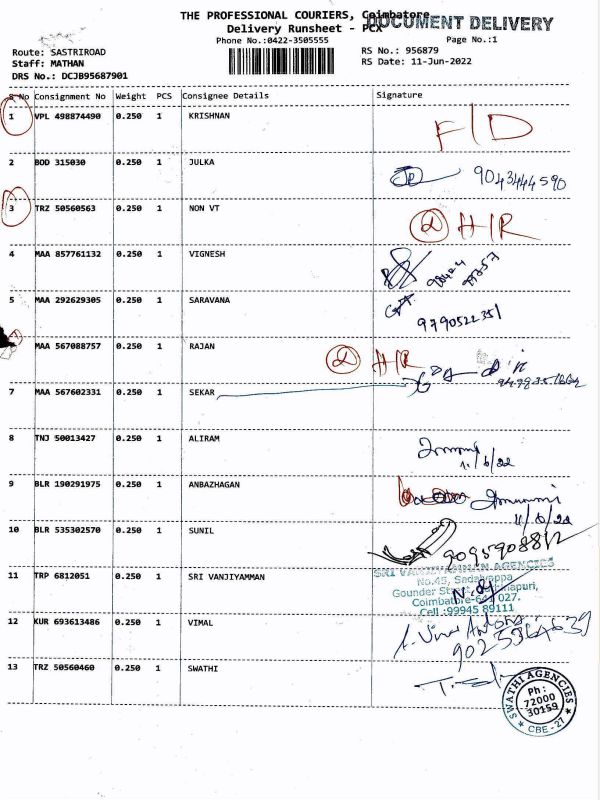 THE PROFESSIONAL COURIERS, Coimbatore
DOCUMENT DELIVERY
Delivery Runsheet - PCX
Phone No.:0422-3505555
Page No.:1
Route: SASTRIROAD
RS No.: 956879
Staff: MATHAN
RS Date: 11-Jun-2022
DRS No.: DCJB95687901
S No Consignment No Weight PCS Consignee Details Signature
1 VPL 498874490 0.250 1 KRISHNAN F/D
2 BOD 315030 0.250 1 JULKA 9043444590
3 TRZ 50560563 0.250 1 NON VT
4 MAA 857761132 0.250 1 VIGNESH
5 MAA 292629305 0.250 1 SARAVANA 9790522351
MAA 567088757 0.250 1 RAJAN
7 MAA 567602331 0.250 1 SEKAR
8 TNJ 50013427 0.250 1 ALIRAM
11/6/22
9 BLR 190291975 0.250 1 ANBAZHAGAN
11/6/22
10 BLR 535302570 0.250 1 SUNIL 9095908812
11 TRP 6812051 0.250 1 SRI VANJIYAMMAN
SRI VANJIYAMMAN AGENCIES
No.45, Sadaiyappa
Gounder
Coimbatore-641 027.
Cell :99945 89111
12 KUR 693613486 0.250 1 VIMAL
9025364639
13 TRZ 50560460 0.250 1 SWATHI
SWATHI AGENCIES
Ph :
72000
30159
CBE - 27